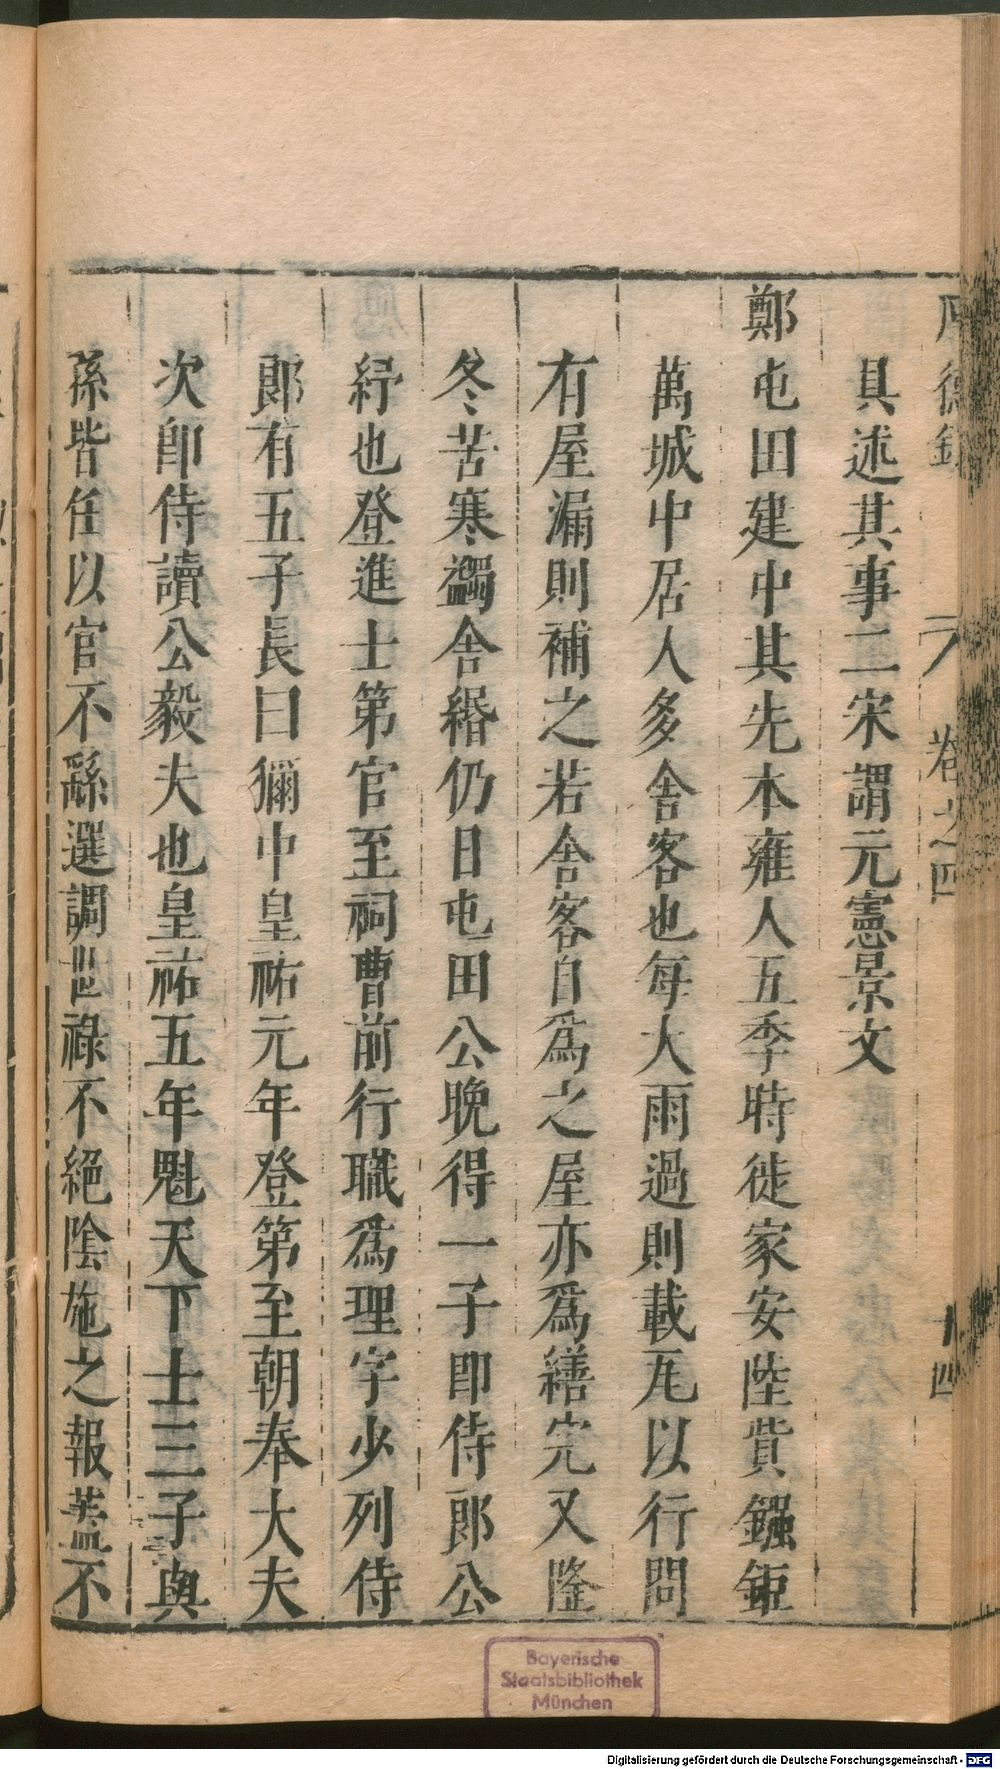 厚德錄 卷之四 十四
具述其事二宋謂元憲景文
鄭屯田建中其先本雍人五季時徙家安陸貲鏹鉅
萬城中居人多舍客也每大雨過則載瓦以行問
有屋漏則補之若舍客自爲之屋亦爲繕完又隆
冬苦寒蠲舍緡仍日屯田公晚得一子即侍郎公
紓也登進士第官至祠曹前行職爲理字少列侍
郎有五子長曰獮中皇祐元年登第至朝奉大夫
次卽侍讀公毅夫也皇祐五年魁天下士三子與
孫皆任以官不繇選調世祿不絕陰施之報蓋不
Bayerische
Staatsbibliothek
München
Digitalisierung gefördert durch die Deutsche Forschungsgemeinschaft - DFG